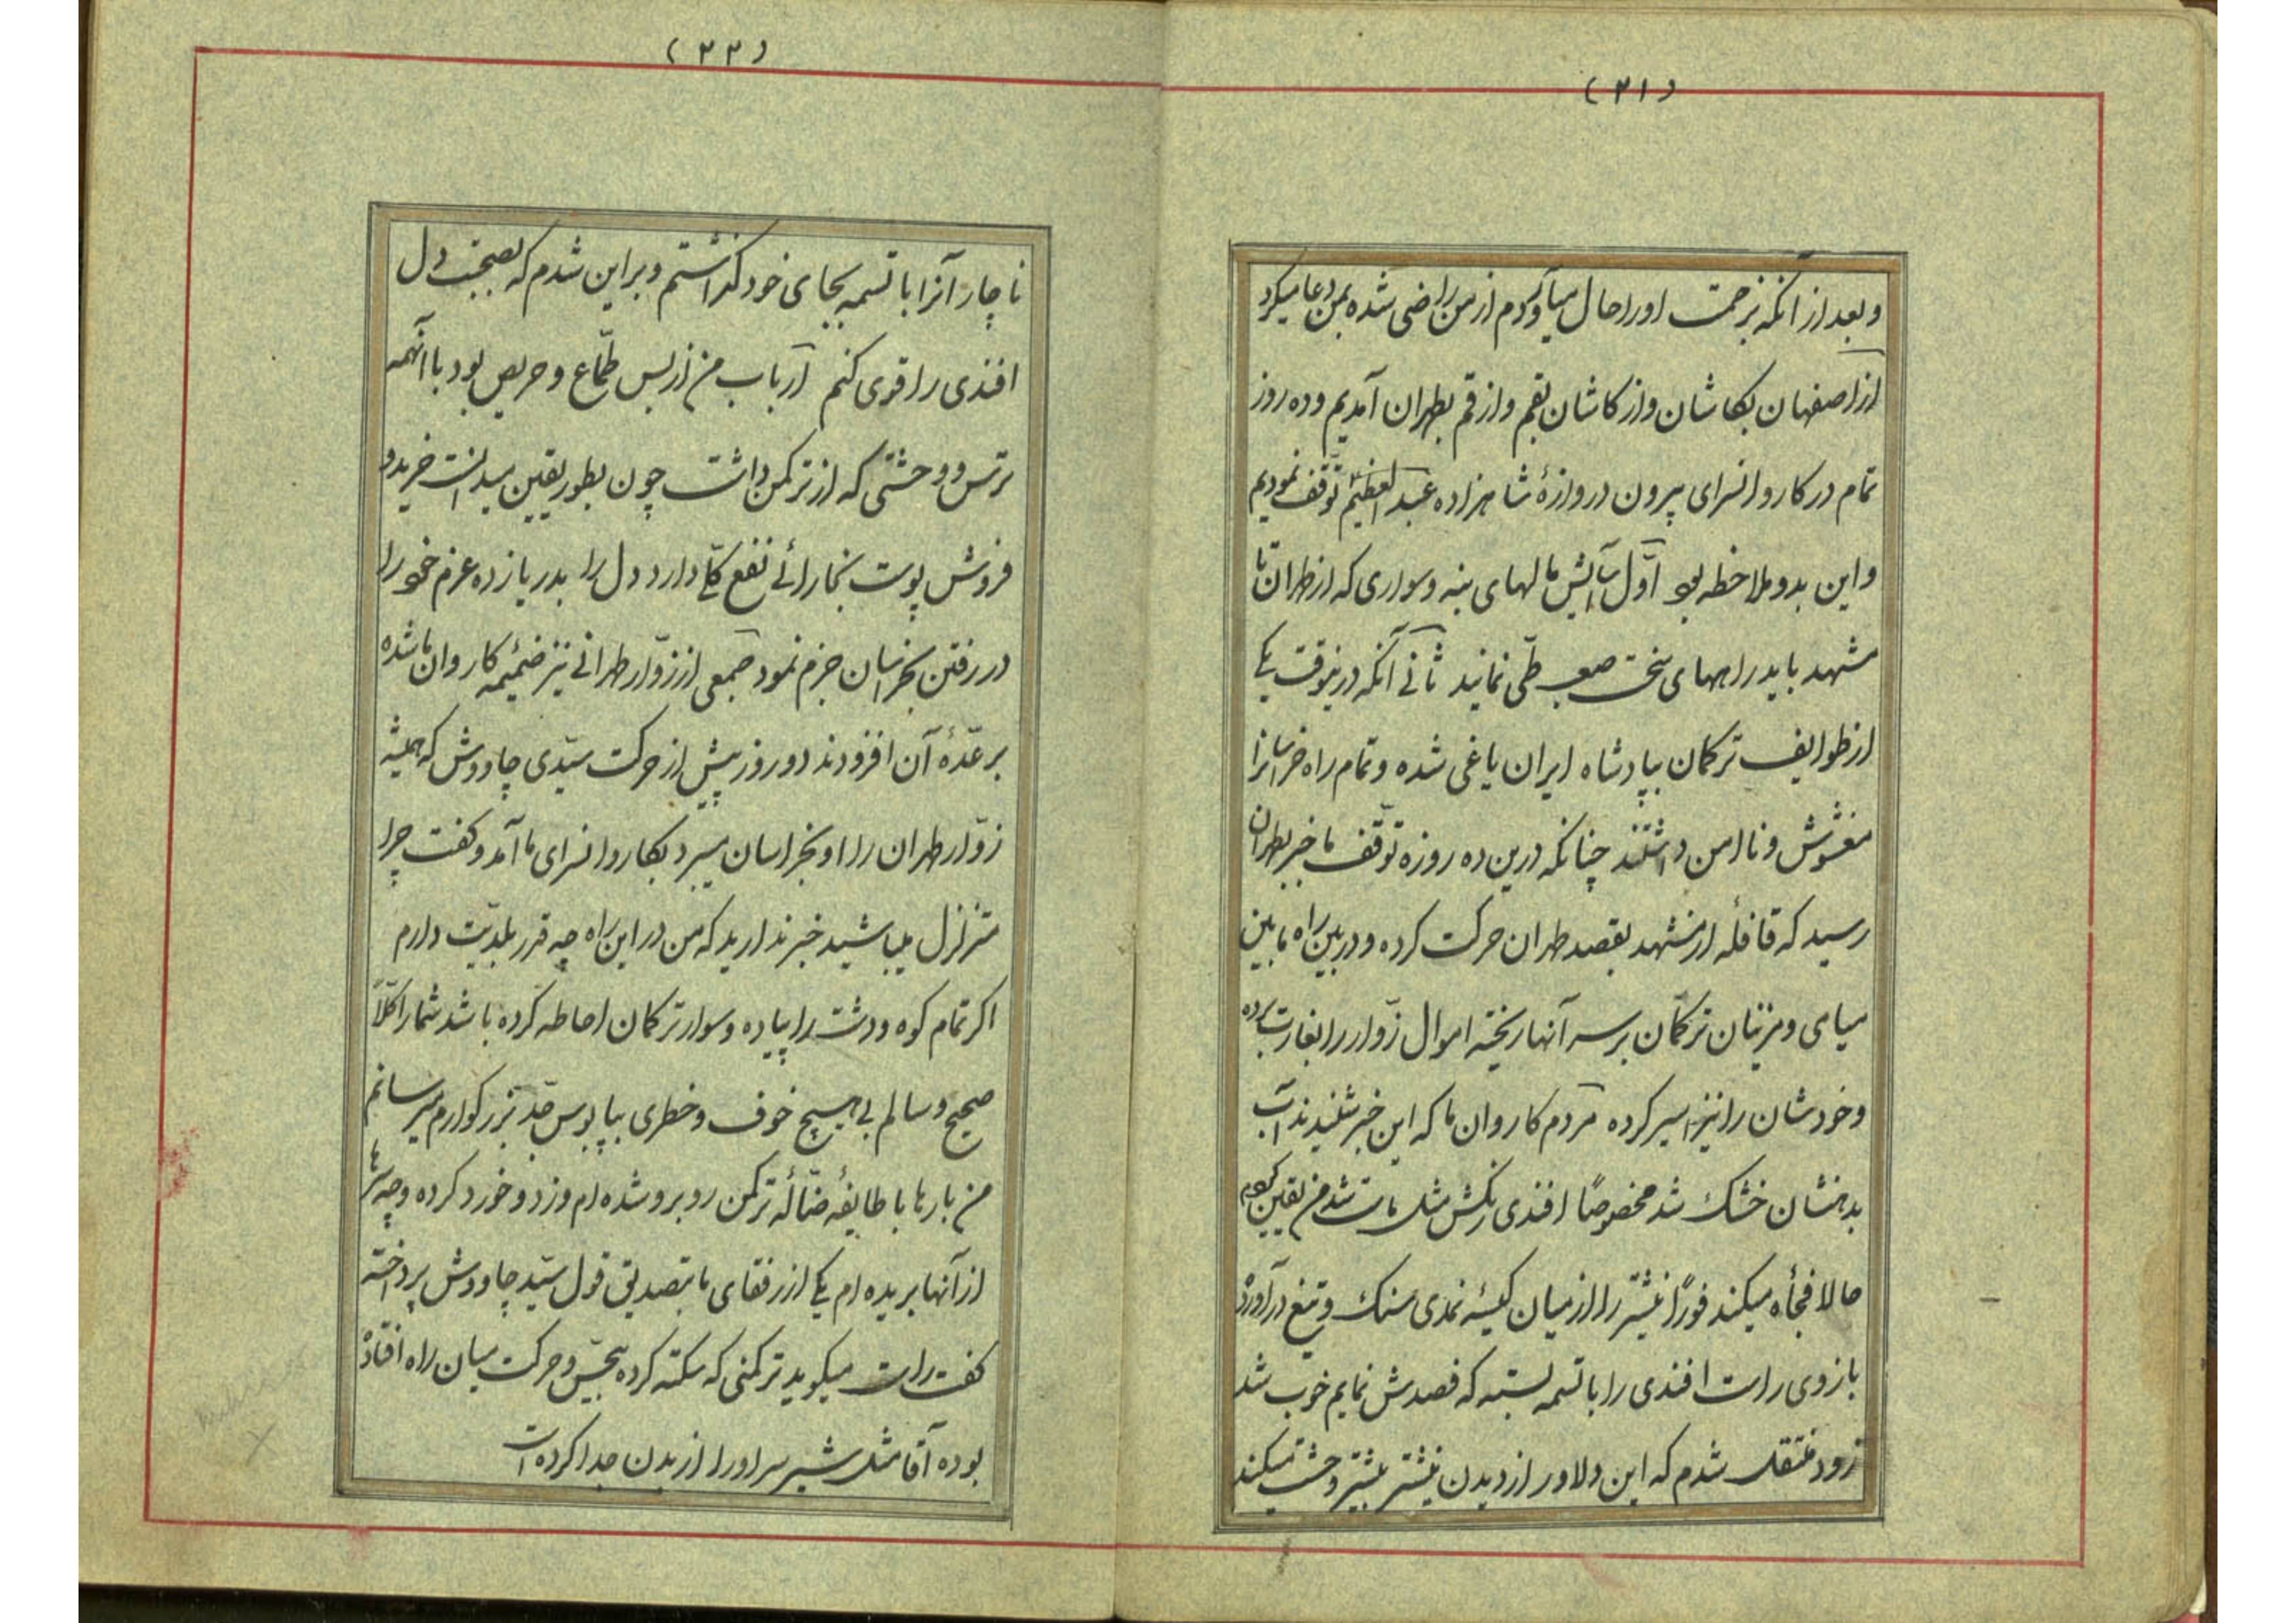 (۲۱)
و بعد از آنکه بزحمت او را حال میآوردم از من راضی شده بمن دعا میکرد
از اصفهان بکاشان و از کاشان بقم و از قم بطهران آمدیم و ده روز
تمام در کاروانسرای بیرون دروازهٔ شاهزاده عبدالعظیم توقّف نمودیم
و این بدو ملاحظه بود اوّل آسایش مالهای بنه و سواری که از طهران تا
مشهد باید راههای سخت صعب طیّ نمایند ثانی آنکه درینوقت یکی
از طوایف ترکمان بپادشاه ایران یاغی شده و تمام راه خراسانرا
مغشوش و ناامن داشتند چنانکه درین ده روزه توقّف ما خبر بطهران
رسید که قافلهٔ از مشهد بقصد طهران حرکت کرده و در بین راه مابین
میامی و مزینان ترکمان بر سر آنها ریخته اموال زوّار را بغارت برده
و خودشان را نیز اسیر کرده مردم کاروان ما که این خبر شنیدند آب
بدهنشان خشک شد مخصوصاً افندی رنگش مثل مات شد من یقین کردم
حالا فجأه میکند فوراً نیشتر را از میان کیسهٔ نمدی سنک و تیغ درآورده
بازوی راست افندی را با تسمه بسته که فصدش نمایم خوب شد
زود منتقل شدم که این دلاور از دیدن نیشتر بیشتر وحشت میکند
(۲۲)
ناچار آنرا با تسمه بجای خود گذاشتم و براین شدم که بصحبت دل
افندی را قوی کنم ارباب من از بس طمّاع و حریص بود با آنهمه
ترس و وحشتی که از ترکمن داشت چون بطور یقین میدانست خرید و
فروش پوست بخارائی نفع کلّی دارد دل را بدریا زده عزم خود را
در رفتن بخراسان جزم نمود جمعی از زوّار طهرانی نیز ضمیمهٔ کاروان ما شده
بر عدّهٔ آن افزودند دو روز پیش از حرکت سیّدی چاووش که همیشه
زوّار طهران را او بخراسان میبرد بکاروانسرای ما آمد و گفت چرا
متزلزل میباشید خبر ندارید که من در این راه چه قدر بلدیّت دارم
اکر تمام کوه و دشت را پیاده و سوار ترکمان احاطه کرده باشد شما را کلّاً
صحیح و سالم بی هیچ خوف و خطری بپابوس جدّ بزرکوارم میرسانم
من بارها با طایفهٔ ضالّهٔ ترکمن روبرو شده ام و زد و خورد کرده و چه سرها
از آنها بریده ام یکی از رفقای ما بتصدیق قول سیّد چاووش پرداخته
کفت راست میکوید ترکمنی که سکته کرده بیحسّ و حرکت میان راه افتاده
بوده آقا مثل شیر سر او را از بدن جدا کرده است